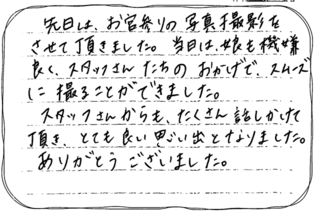 先日は、お宮参りの写真撮影を
させて頂きました。当日は、娘も機嫌
良く、スタッフさんたちのおかげで、スムーズ
に撮ることができました。
スタッフさんからも、たくさん話しかけて
頂き、とても良い思い出となりました。
ありがとうございました。